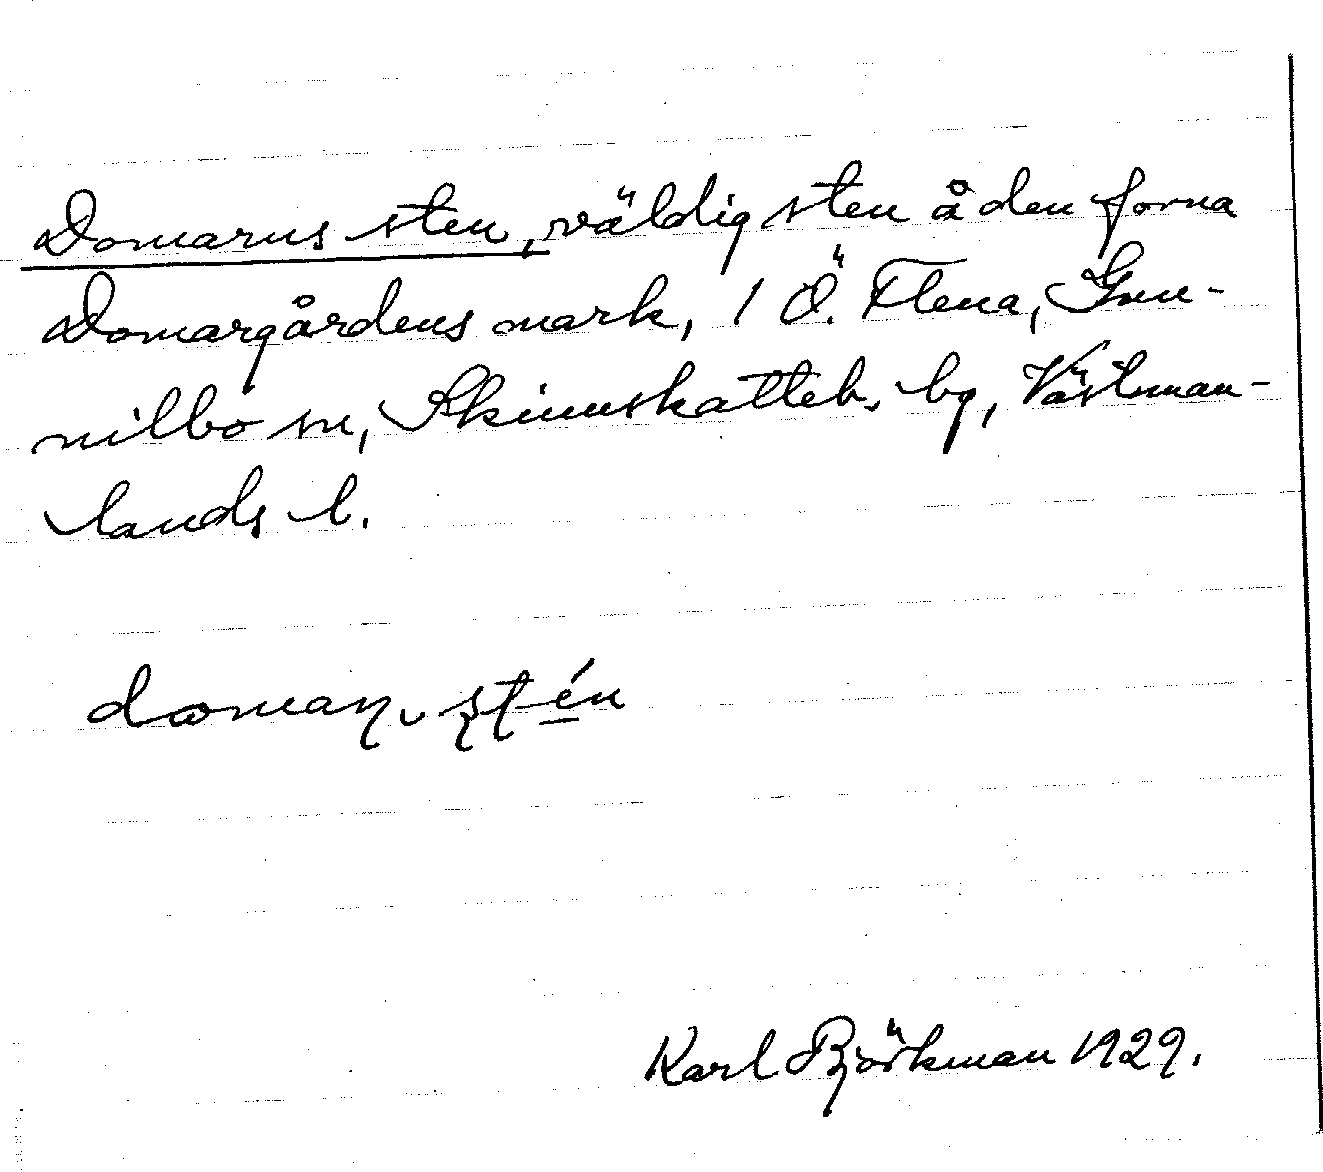 Domarns sten, väldig sten å den forna
Domargårdens mark, 1 Ö. Flena, Gun-
nilbo sn, Skinnskatteb. bg, Västman-
lands l.
Karl Björkman 1929.